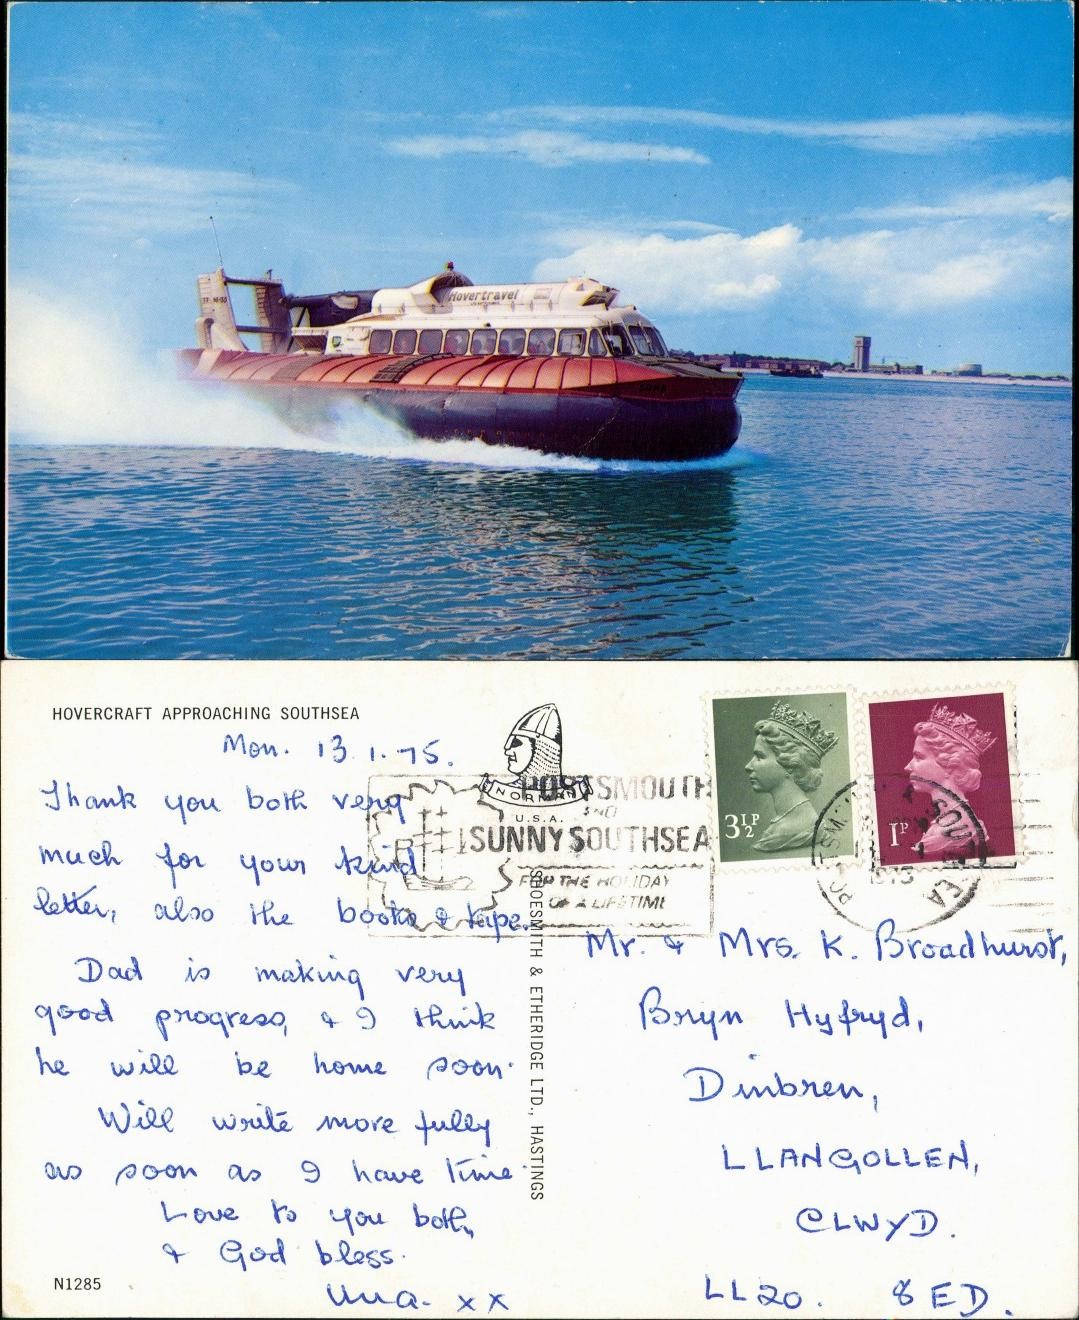 Hovertravel
HOVERCRAFT APPROACHING SOUTHSEA
Mon. 13.1.75.
Thank you both very
much for your kind
letter, also the books & tape.
Dad is making very
good progress, & I think
he will be home soon.
Will write more fully
as soon as I have time.
Love to you both,
& God bless.
Una. x x
N1285
NORMAN
U.S.A.
SHOESMITH & ETHERIDGE LTD., HASTINGS
PORTSMOUTH
AND
SUNNY SOUTHSEA
FOR THE HOLIDAY
OF A LIFETIME
3½P
1P
Mr. & Mrs. K. Broadhurst,
Bryn Hyfryd,
Dinbren,
LLANGOLLEN,
CLWYD.
LL20. 8ED.